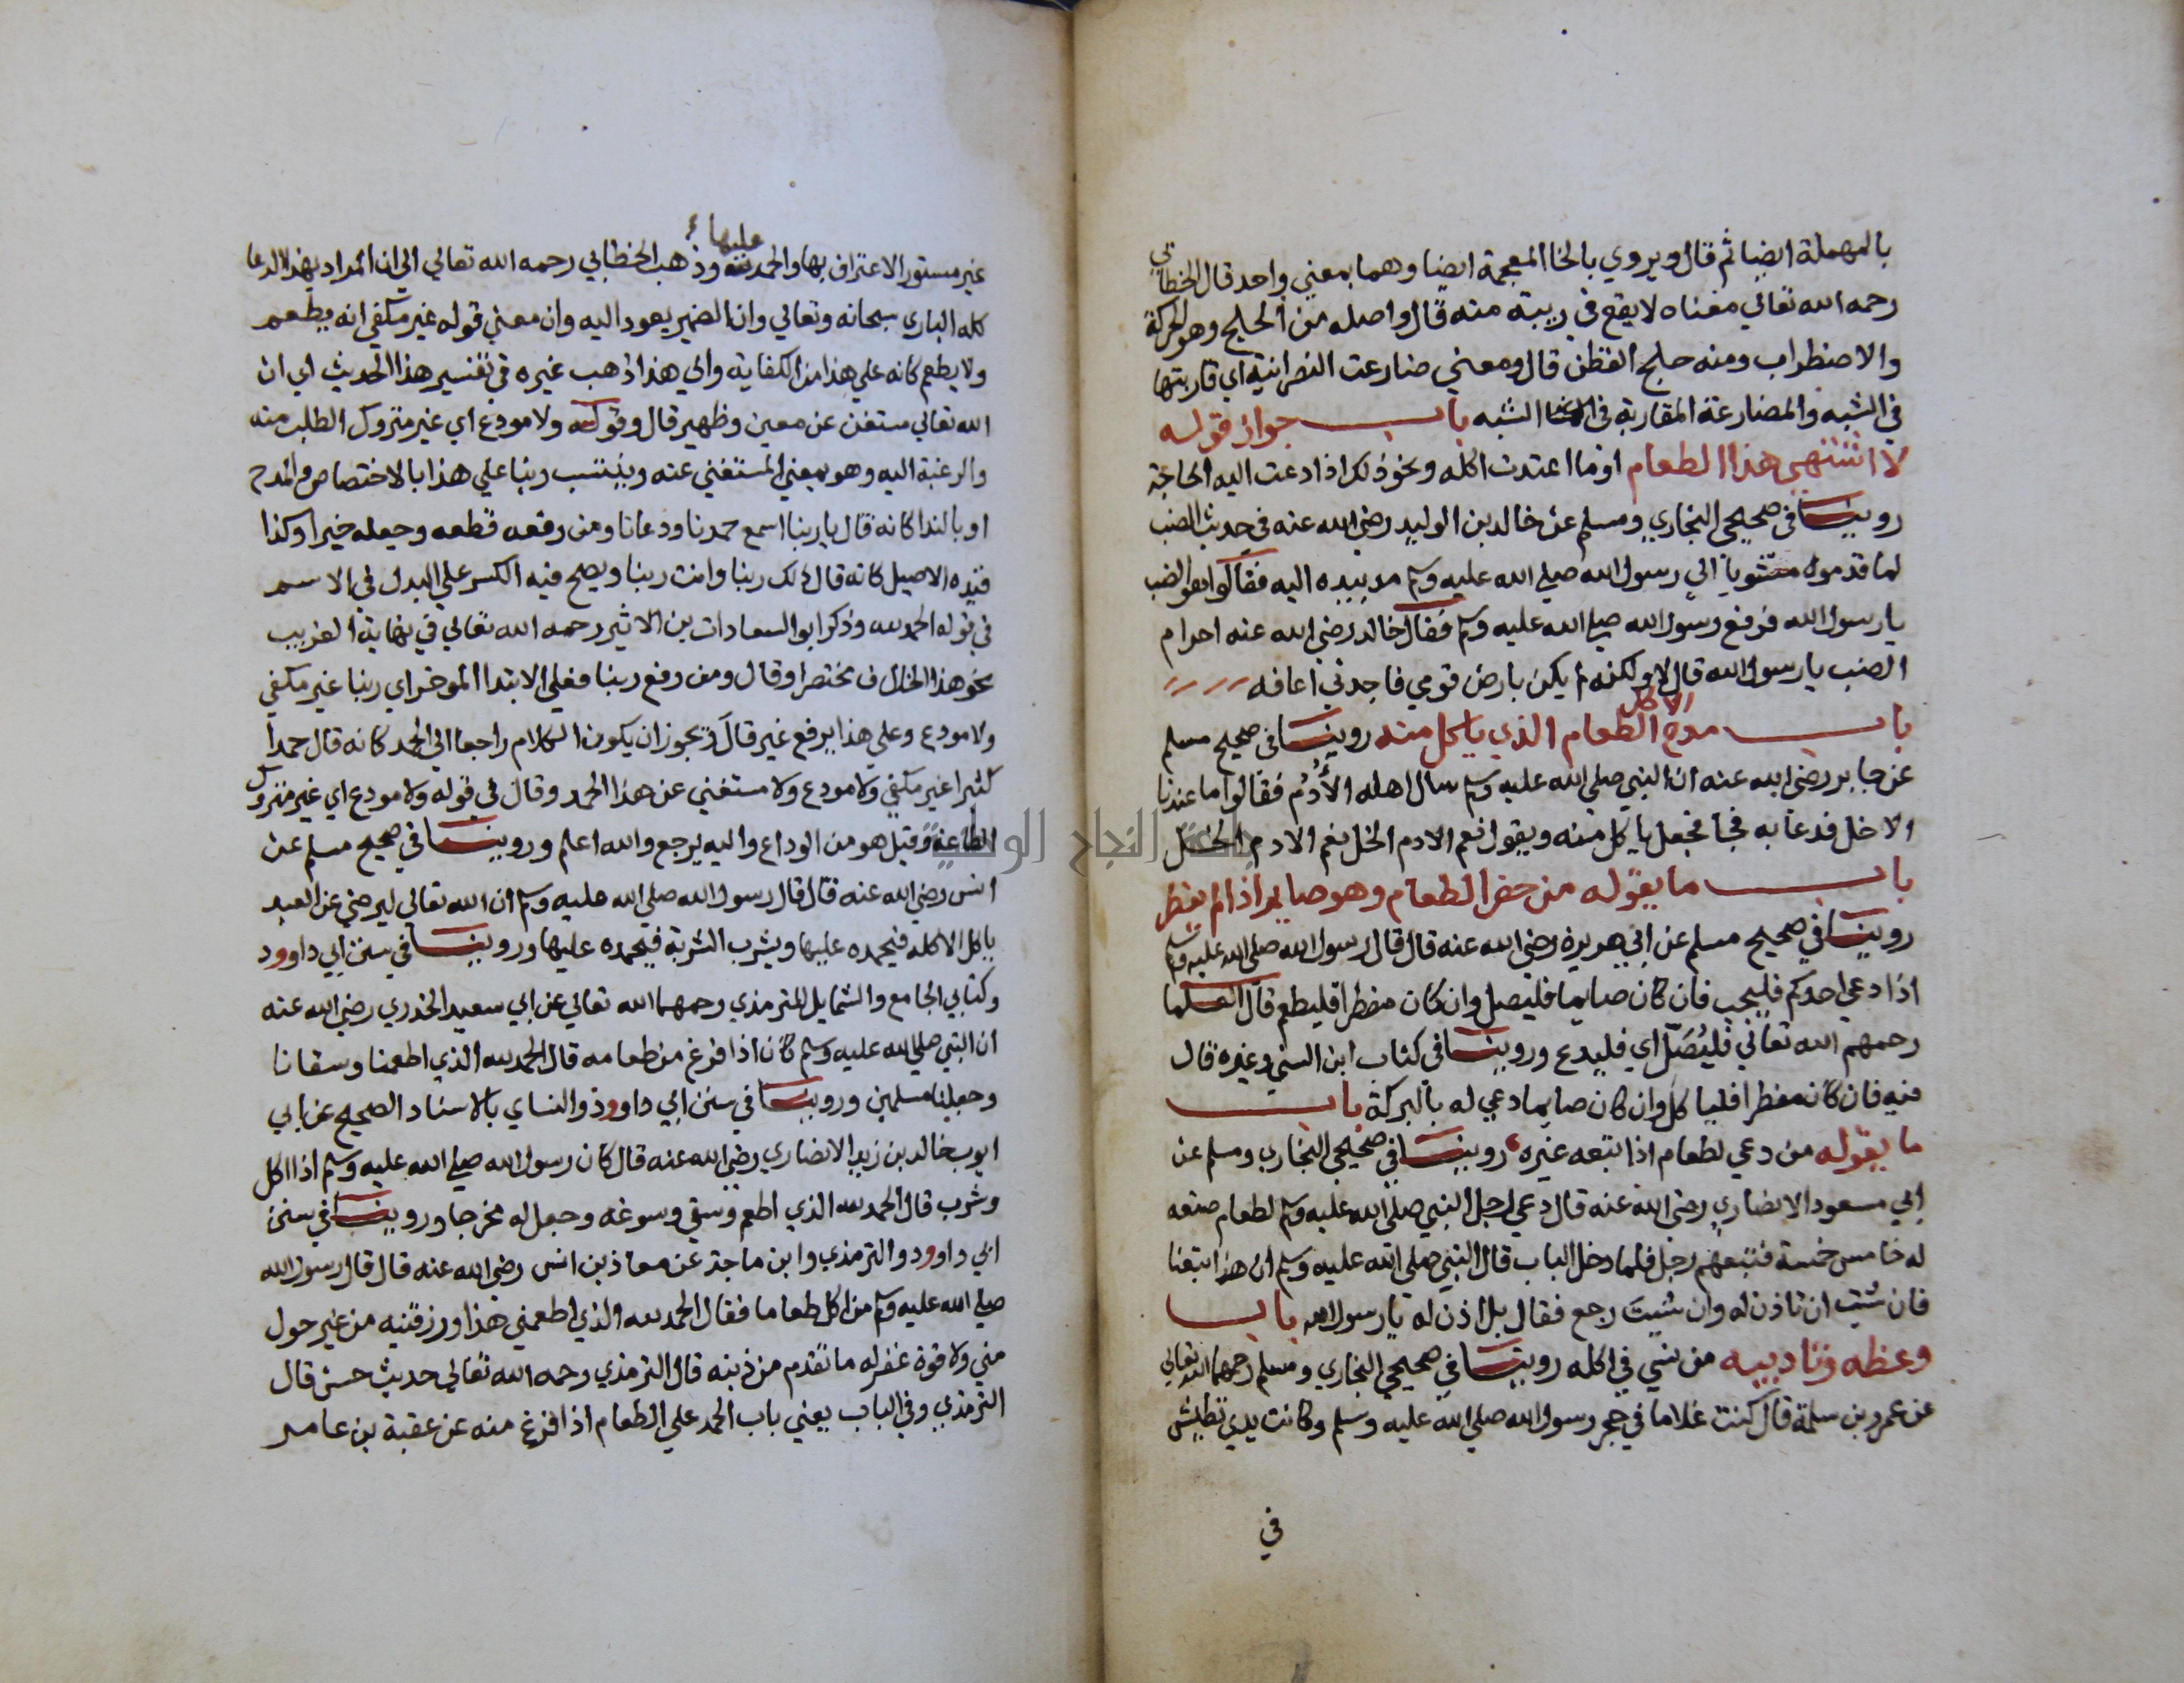 بالمهملة ايضا ثم قال ويروي بالخا المعجمة ايضا وهما بمعني واحد قال الخطابي
رحمه الله تعالي معناه لا يقع في ريبة منه قال واصله من الحلج وهو الحركة
والاضطراب ومنه حلج القطن قال ومعني ضارعت النصرانية اي قاربتها
في الشبه والمضارعة المقاربة في الشبه باب جواز قوله
لا اشتهي هذا الطعام او ما اعتدت اكله ونحو ذلك اذا دعت اليه الحاجة
روينا في صحيحي البخاري ومسلم عن خالد بن الوليد رضي الله عنه في حديث الضب
لما قدموه مشويا الي رسول الله صلي الله عليه وسلم مد بيده اليه فقالوا هو الضب
يا رسول الله فرفع رسول الله صلي الله عليه وسلم فقال خالد رضي الله عنه احرام
الضب يا رسول الله قال لا ولكنه لم يكن بارض قومي فاجدني اعافه
باب مدح الاكل الطعام الذي ياكل منه روينا في صحيح مسلم
عن جابر رضي الله عنه ان النبي صلي الله عليه وسلم سال اهله الأُدُم فقالوا ما عندنا
الا خل فدعا به فجا فجعل ياكل منه ويقول نعم الادم الخل نعم الادم الخل
باب ما يقوله من حضر الطعام وهو صايم اذا لم يفطر
روينا في صحيح مسلم عن ابي هريرة رضي الله عنه قال قال رسول الله صلي الله عليه وسلم
اذا دعي احدكم فليجب فان كان صايما فليصل وان كان مفطرا فليطعم قال العلما
رحمهم الله تعالي فليُصَلّ اي فليدع وروينا في كتاب ابن السني وغيره قال
فيه فان كان مفطرا فلياكل وان كان صايما دعي له بالبركة باب
ما يقوله من دعي لطعام اذا تبعه غيره روينا في صحيحي البخاري ومسلم عن
ابي مسعود الانصاري رضي الله عنه قال دعي رجل النبي صلي الله عليه وسلم لطعام صنعه
له خامس خمسة فتبعهم رجل فلما دخل الباب قال النبي صلي الله عليه وسلم ان هذا اتبعنا
فان شئت ان تاذن له وان شيت رجع فقال بل اذن له يا رسول الله باب
وعظه وتاديبه من يسي في اكله روينا في صحيحي البخاري ومسلم رحمهما الله تعالي
عن عمرو بن سلمة قال كنت غلاما في حجر رسول الله صلي الله عليه وسلم وكانت يدي تطيش
في
غير مستور الاعتراف بها والحمد عليها وذهب الخطابي رحمه الله تعالي الي ان المراد بهذا الدعا
كله الباري سبحانه وتعالي وان الضمير يعود اليه وان معني قوله غير مكفي انه يطعم
ولا يطعم كانه علي هذا من الكفاية والي هذا ذهب غيره في تفسير هذا الحديث اي ان
الله تعالي مستغن عن معين وظهير قال وقوله ولا مودع اي غير متروك الطلب منه
والرغبة اليه وهو بمعني المستغني عنه وينتصب ربنا علي هذا بالاختصاص والمدح
او بالندا كانه قال يا ربنا اسمع حمدنا ودعانا ومن رفعه قطعه وجعله خبرا وكذا
قيده الاصيل كانه قال ذلك ربنا وانت ربنا ويصح فيه الكسر علي البدل في الاسم
في قوله الحمد لله وذكر ابو السعادات بن الاثير رحمه الله تعالي في نهاية الغريب
نحو هذا الخلاف مختصرا وقال ومن رفع ربنا فعلي الابتدا الموخر اي ربنا غير مكفي
ولا مودع وعلي هذا يرفع غير قال ويجوز ان يكون الكلام راجعا الي الحمد كانه قال حمدا
كثيرا غير مكفي ولا مودع ولا مستغني عن هذا الحمد وقال في قوله ولا مودع اي غير متروك
الطاعة وقيل هو من الوداع واليه يرجع والله اعلم وروينا في صحيح مسلم عن
انس رضي الله عنه قال قال رسول الله صلي الله عليه وسلم ان الله تعالي ليرضي عن العبد
ياكل الاكله فيحمده عليها ويشرب الشربة فيحمده عليها وروينا في سنن ابي داوود
وكتابي الجامع والشمايل للترمذي رحمهما الله تعالي عن ابي سعيد الخدري رضي الله عنه
ان النبي صلي الله عليه وسلم كان اذا فرغ من طعامه قال الحمد لله الذي اطعمنا وسقانا
وجعلنا مسلمين وروينا في سنن ابي داوود والنساي بالاسناد الصحيح عن ابي
ايوب خالد بن زيد الانصاري رضي الله عنه قال كان رسول الله صلي الله عليه وسلم اذا اكل
وشرب قال الحمد لله الذي اطعم وسقي وسوغه وجعل له مخرجا وروينا في سنن
ابي داوود والترمذي وابن ماجة عن معاذ بن انس رضي الله عنه قال قال رسول الله
صلي الله عليه وسلم من اكل طعاما فقال الحمد لله الذي اطعمني هذا ورزقنيه من غير حول
مني ولا قوة غفر له ما تقدم من ذنبه قال الترمذي رحمه الله تعالي حديث حسن قال
الترمذي وفي الباب يعني باب الحمد علي الطعام اذا فرغ منه عن عقبة بن عامر